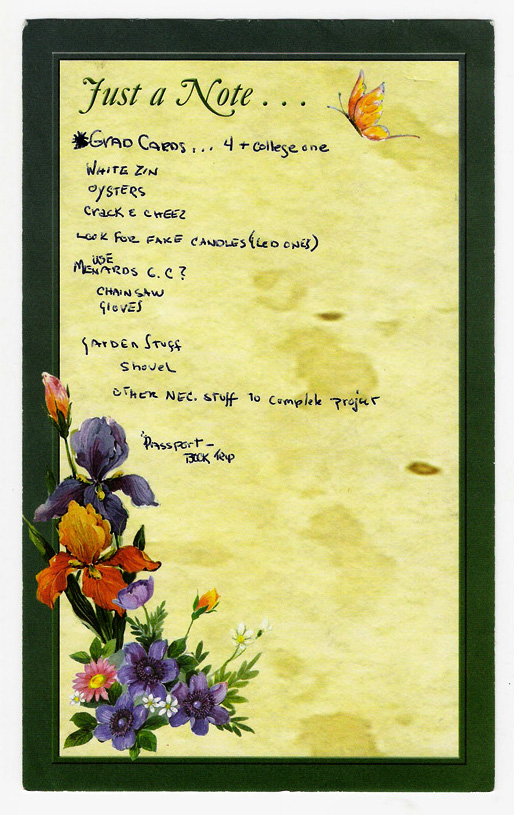 Just a Note . . .
*GRAD CARDS... 4 + college one
WHITE ZIN
OYSTERS
CRACK & CHEEZ
LOOK FOR FAKE CANDLES (LED ONES)
USE
MENARDS G.C?
CHAINSAW
GLOVES
GARDEN STUFF
SHOVEL
OTHER NEC. STUFF to complete project
PASSPORT -
BOOK TRIP